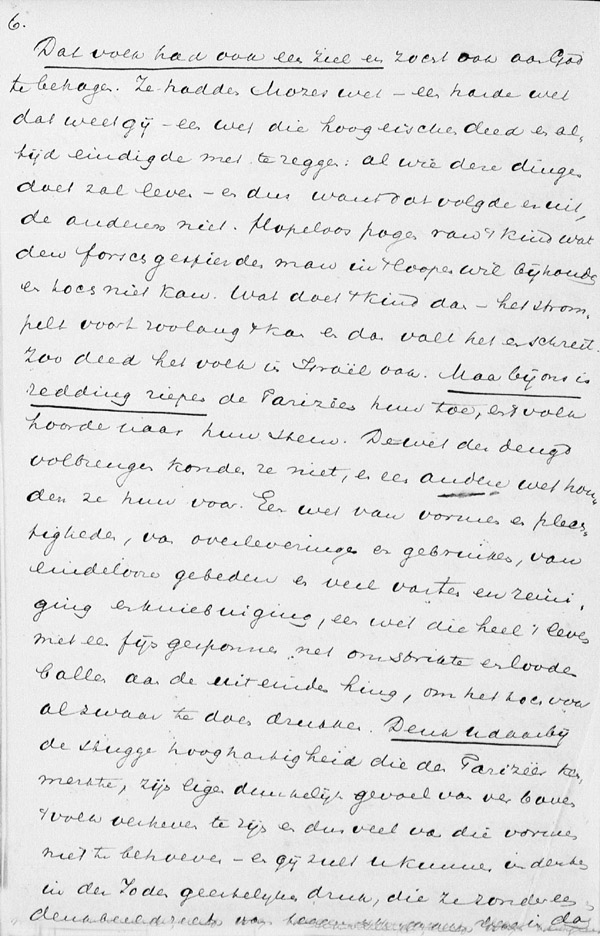 6.
Dat volk had ook een ziel en zocht ook aan God
te behagen. Ze hadden Mozes wet – een harde wet
dat weet gij – een wet die hooge eischen deed en al-
tijd eindigde met te zeggen: al wie deze dingen
doet zal leven – en dus want dat volgde er uit,
de anderen niet. Hopeloos pogen van 't kind wat
den forsch gespierden man in 't loopen wil bijhouden
en toch niet kan. Wat doet 't kind dan – het strom-
pelt voort zoolang 't kan en dan valt het en schreit.
Zoo deed het volk in Israël ook. Maar bij ons is
redding riepen de Farizëen hun toe, en 't volk
hoorde naar hun stem. De wet der deugd
volbrengen konden ze niet, en een andere wet hou-
den ze hun voor. Een wet van vormen en plech-
tigheden, van overleveringen en gebruiken, van
eindelooze gebeden en veel vasten en reini-
ging en kniebuiging, een wet die heel 't leven
met een fijn gesponnen net omstrikte en looden
ballen aan de uiteinden hing, om het toch vooral
al zwaar te doen drukken. Denk u daarbij
de stugge hooghartigheid die den Farizëer ken-
merkte, zijn eigen dunkelijk gevoel van verboven
't volk verheven te zijn en dus veel van die vormen
niet te behoeven – en gij zult u kunnen indenken
in der Joden geestelijken druk, die ze zonder een